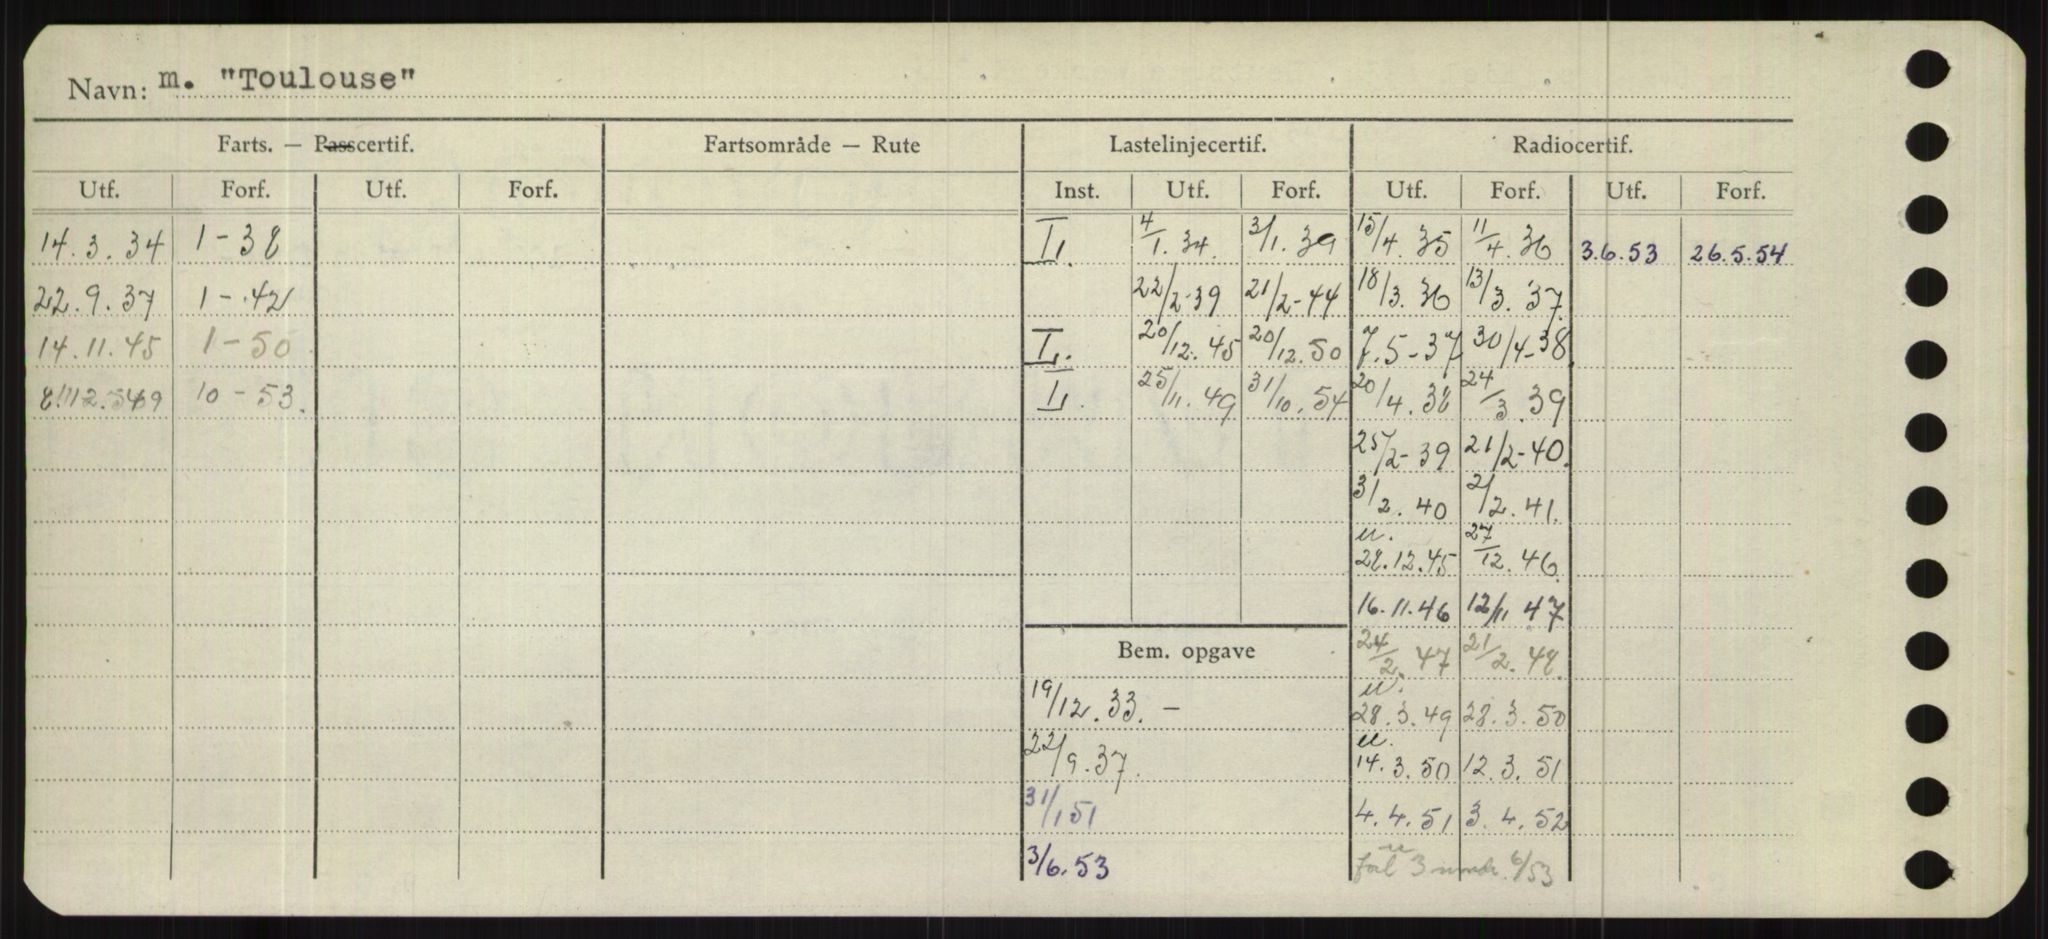 Navn: m. "Toulouse"
Farts. — Passcertif. Fartsområde — Rute Lastelinjecertif. Radiocertif.
Utf. Forf. Utf. Forf. Inst. Utf. Forf. Utf. Forf. Utf. Forf.
14.3.34 1-38 I. 4/1.34. 3/1.39 15/4.35 11/4.36 3.6.53 26.5.54
22.9.37 1-42 22/2-39 21/2-44 18/3.36 13/3.37.
14.11.45 1-50 I. 20/12.45 20/12.50 7.5-37 30/4-38.
10-53. I. 25/11.49 31/10.54 20/4.38 24/3.39
25/2-39 21/2-40.
3/2.40 2/2.41.
u.
28.12.45 27/12.46.
16.11.46 12/11 47
Bem. opgave 24/2.47 21/2.48.
u.
19/12.33.— 28.3.49 28.3.50
u.
22/9.37. 14.3.50 12.3.51
31/1 51 4.4.51 3.4.52
3/6.53 3 6/53